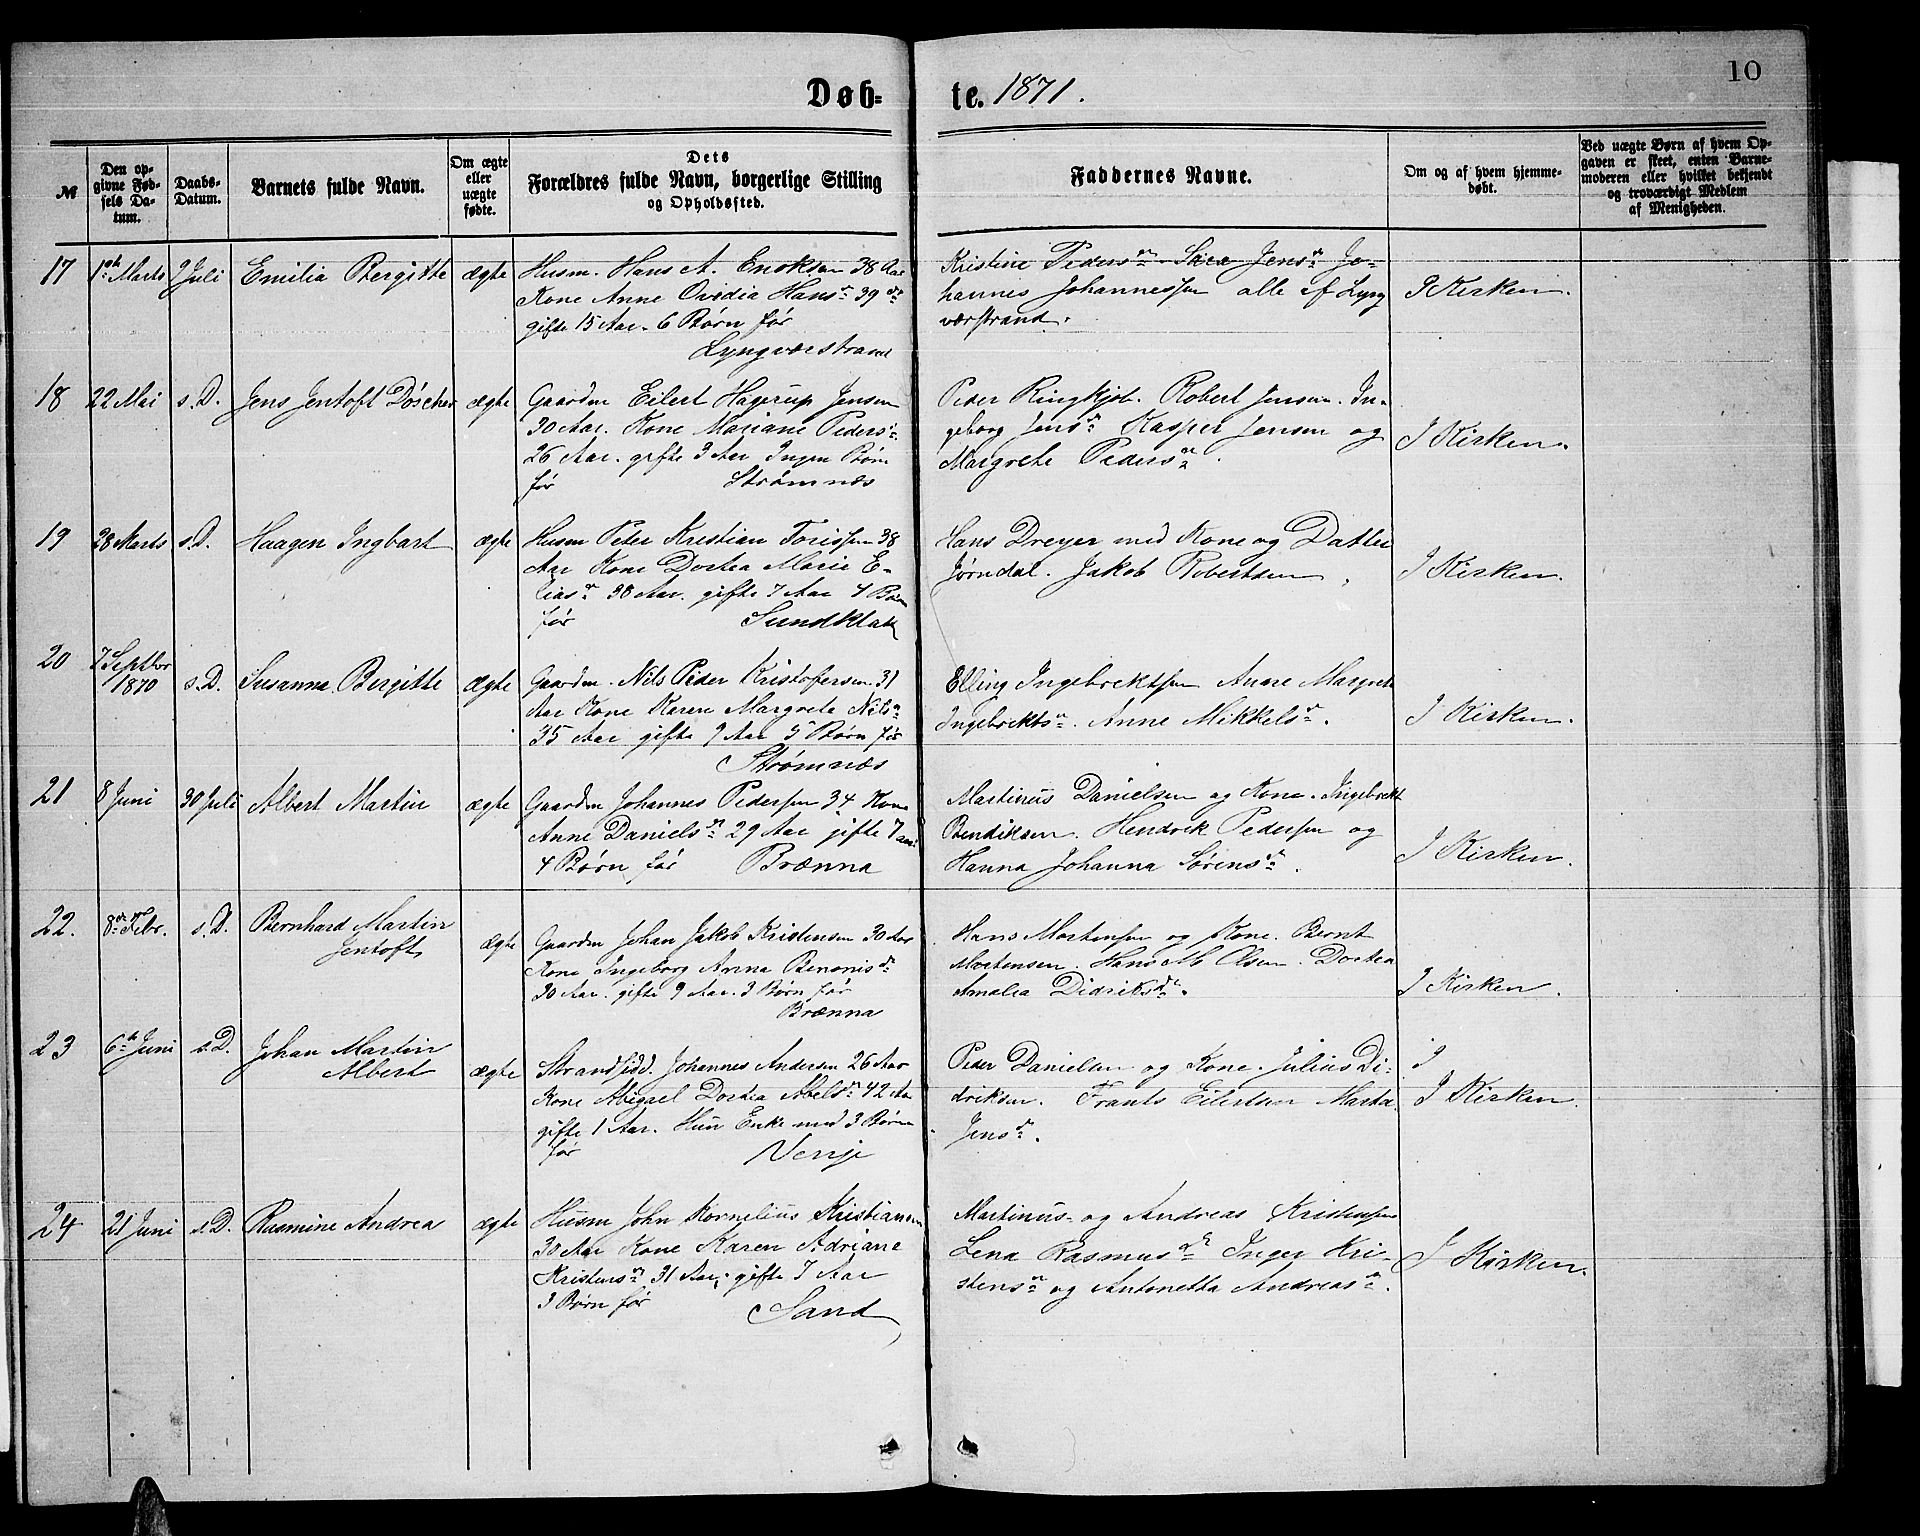 10
Døb-
te. 1871.
№
Den opgivne Fødsels Datum.
Daabs-Datum.
Barnets fulde Navn.
Om ægte eller uægte fødte.
Dets
Forældres fulde Navn, borgerlige Stilling
og Opholdssted.
Faddernes Navne.
Om og af hvem hjemmedøbt.
Ved uægte Børn af hvem Opgaven er skeet, enten Barnemoderen eller hvilket bekjendt og troværdigt Medlem af Menigheden.
17 1ste Marts 2 Juli Emilia Bergitte ægte
Husm. Hans A. Enoksen 38 Aar
Kone Anne Ovidia Hansdr 39
gifte 15 Aar. 6 Børn før
Lyngværstrand
Kristine Pedersdr Sara Jensdr Jo-
hannes Johannessen alle af Lyng
værstrand.
I Kirken.
18 22 Mai s.D. Jens Jentoft Döscher ægte
Gaardm Eilert Hagerup Jensen
30 Aar. Kone Mariane Pedersdr
26 Aar. gifte 3 Aar Ingen Børn
før Strømnæs
Peder Ringkjøb. Robert Jensen. In-
geborg Jensdr Kasper Jensen og
Margrete Pedersdr.
I Kirken.
19 28 Marts s.D. Haagen Ingbart ægte
Husm Peter Kristian Torissen 38
Aar Kone Dortea Marie E-
liasdr 38 Aar. gifte 7 Aar 4 Børn
før Sundklak
Hans Dreyer med Kone og Datter
Jørndal. Jakob Robertsen.
I Kirken.
20 7 Septbr
1870 s.D. Susanna Bergitte ægte
Gaardm. Nils Peder Kristofersen 31
Aar Kone Karen Margrete Nilsdr
35 Aar gifte 9 Aar 5 Børn før
Strømnæs
Elling Ingebrektsen Anne Margrete
Ingebrektsdr. Anne Mikkelsdr.
I Kirken.
21 8 Juni 30 Juli Albert Martin ægte
Gaardm Johannes Pedersen 34 Kone
Anne Danielsdr 29 Aar gifte 7 aar
4 Børn før Brænna
Martinus Danielsen og Kone. Ingebrekt
Bendiksen. Hendrik Pedersen og
Hanna Johanna Sørensdr.
I Kirken.
22. 8de Febr. s.D. Bernhard Martin
Jentoft ægte
Gaardm Johan Jakob Kristensen 30 Aar
Kone Ingeborg Anna Benonisdr
30 Aar. gifte 9 Aar. 3 Børn før
Brænna
Hans Mortensen og Kone. Bernt
Mortensen. Hans M Olsen. Dortea
Amalia Didriksdr.
I Kirken.
23 6te Juni s.D. Johan Martin
Albert ægte
Strandsidd. Johannes Andersen 26 Aar
Kone Abigael Dortea Abelsdr 42 Aar
gifte 1 Aar. Hun Enke med 3 Børn
før Venje
Peder Danielsen og Kone. Julius Di-
driksen. Frants Eilertsen Marta
Jensdr.
I
I Kirken.
24 21 Juni s.D. Rasmine Andrea ægte
Husm John Kornelius Kristiansen
30 Aar Kone Karen Adriane
Kristensdr 31 Aar, gifte 7 Aar
3 Børn før Sand
Martinus og Andreas Kristensen
Lena Rasmusdr Inger Kri-
stensdr og Antonetta Andreasdr.
I Kirken.